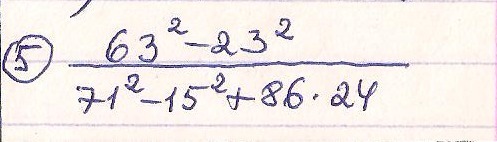 5 63²-23²
71²-15²+86·24